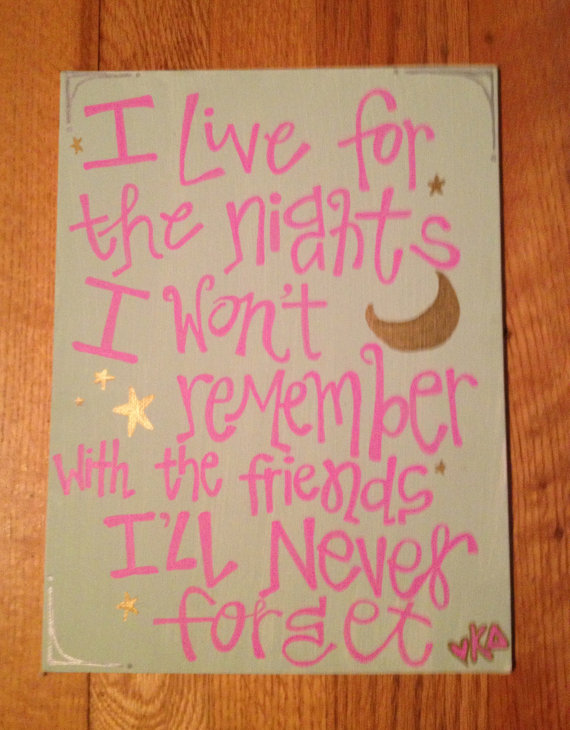 I Live for
the nights
I won't
remember
with the friends
I'LL Never
forget
♥KΔ